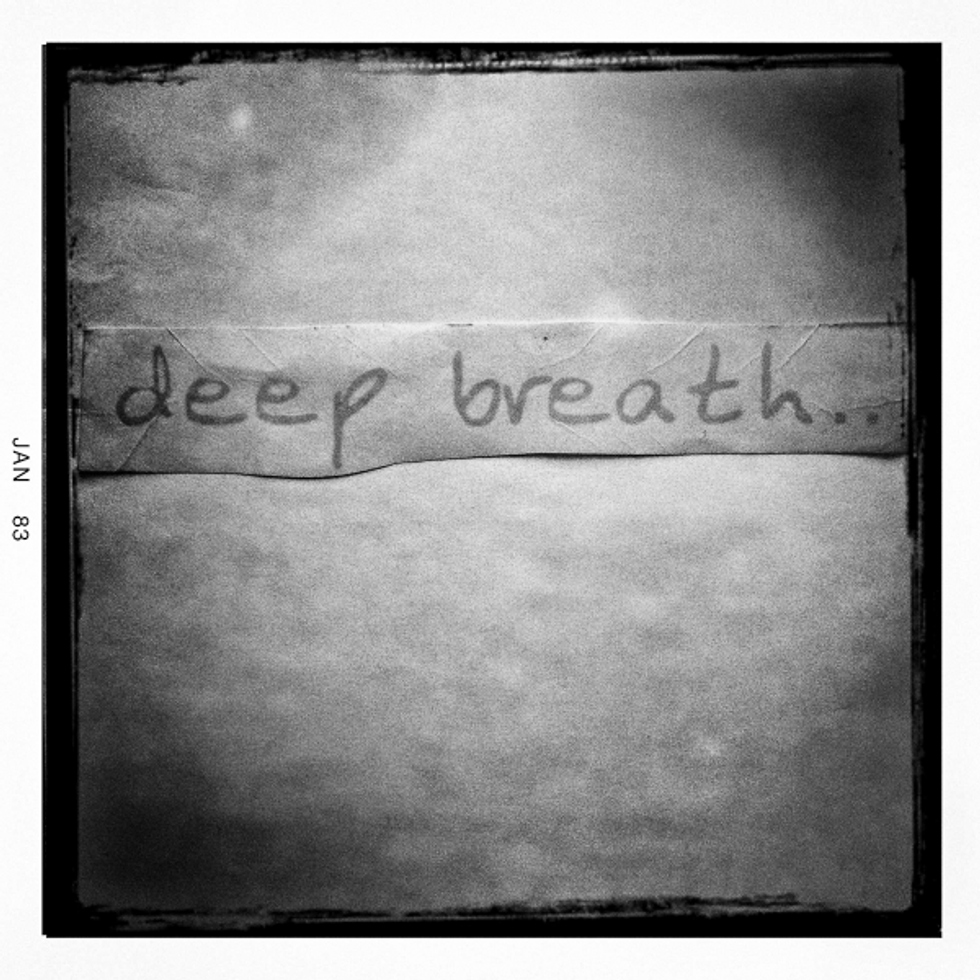 deep breath..
JAN 83